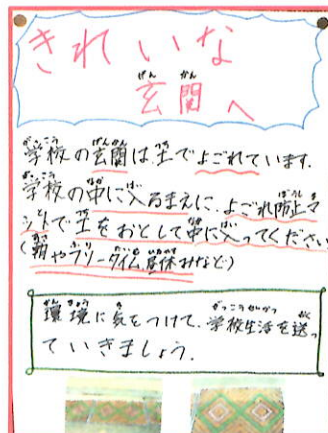 きれいな
玄関へ
学校の玄関は、土でよごれています。
学校の中に入るまえに、よごれ防止マ
ットで土をおとして中に入ってください
(朝やフリータイム、昼休みなど)
環境に気をつけて、学校生活を送っ
ていきましょう。